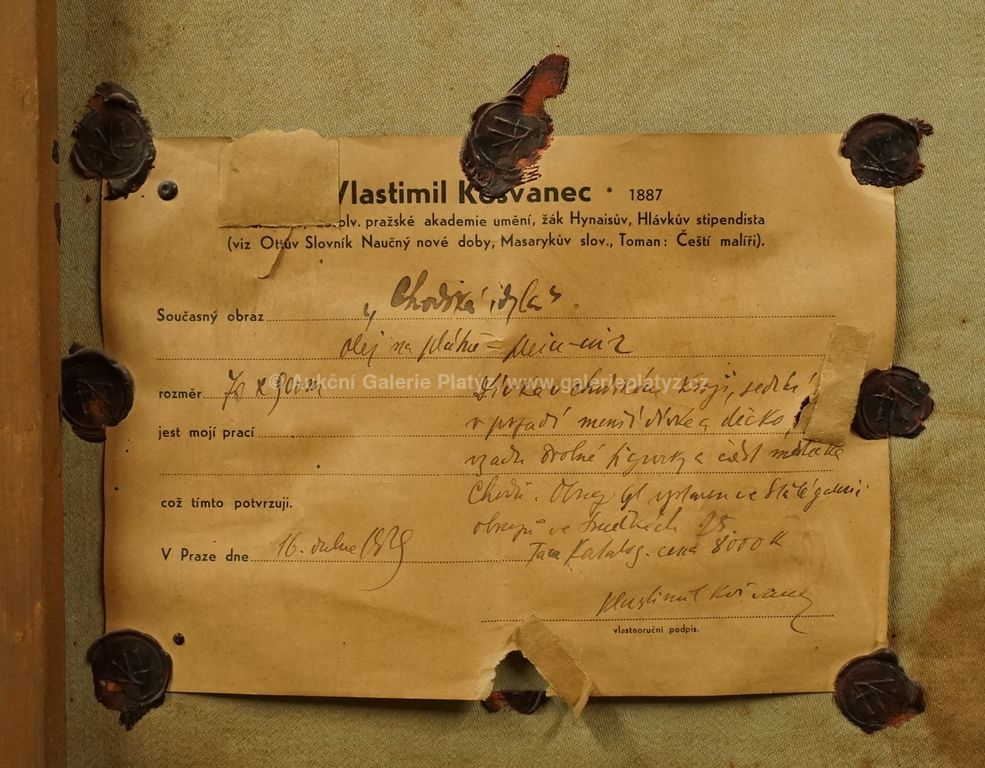 Vlastimil Košvanec * 1887
pražské akademie umění, žák Hynaisův, Hlávkův stipendista
(viz Ottův Slovník Naučný nové doby, Masarykův slov., Toman: Čeští malíři).
Současný obraz „Chodská idyla“.
olej na plátně
rozměr 70 x 90 cm
© Aukční Galerie Platýz, www.galerieplatyz.cz
Dívka v chodském kroji, sedící
jest mojí prací v popředí menší dívka a děcko,
vzadu drobné figurky a část městečka
Chodů. Obraz byl vystaven ve Stálé galerii
což tímto potvrzuji.
obrazů ve
V Praze dne 16. dubna 1929
Katalog. cena 8000 K
Vlastimil Košvanec
vlastnoruční podpis.